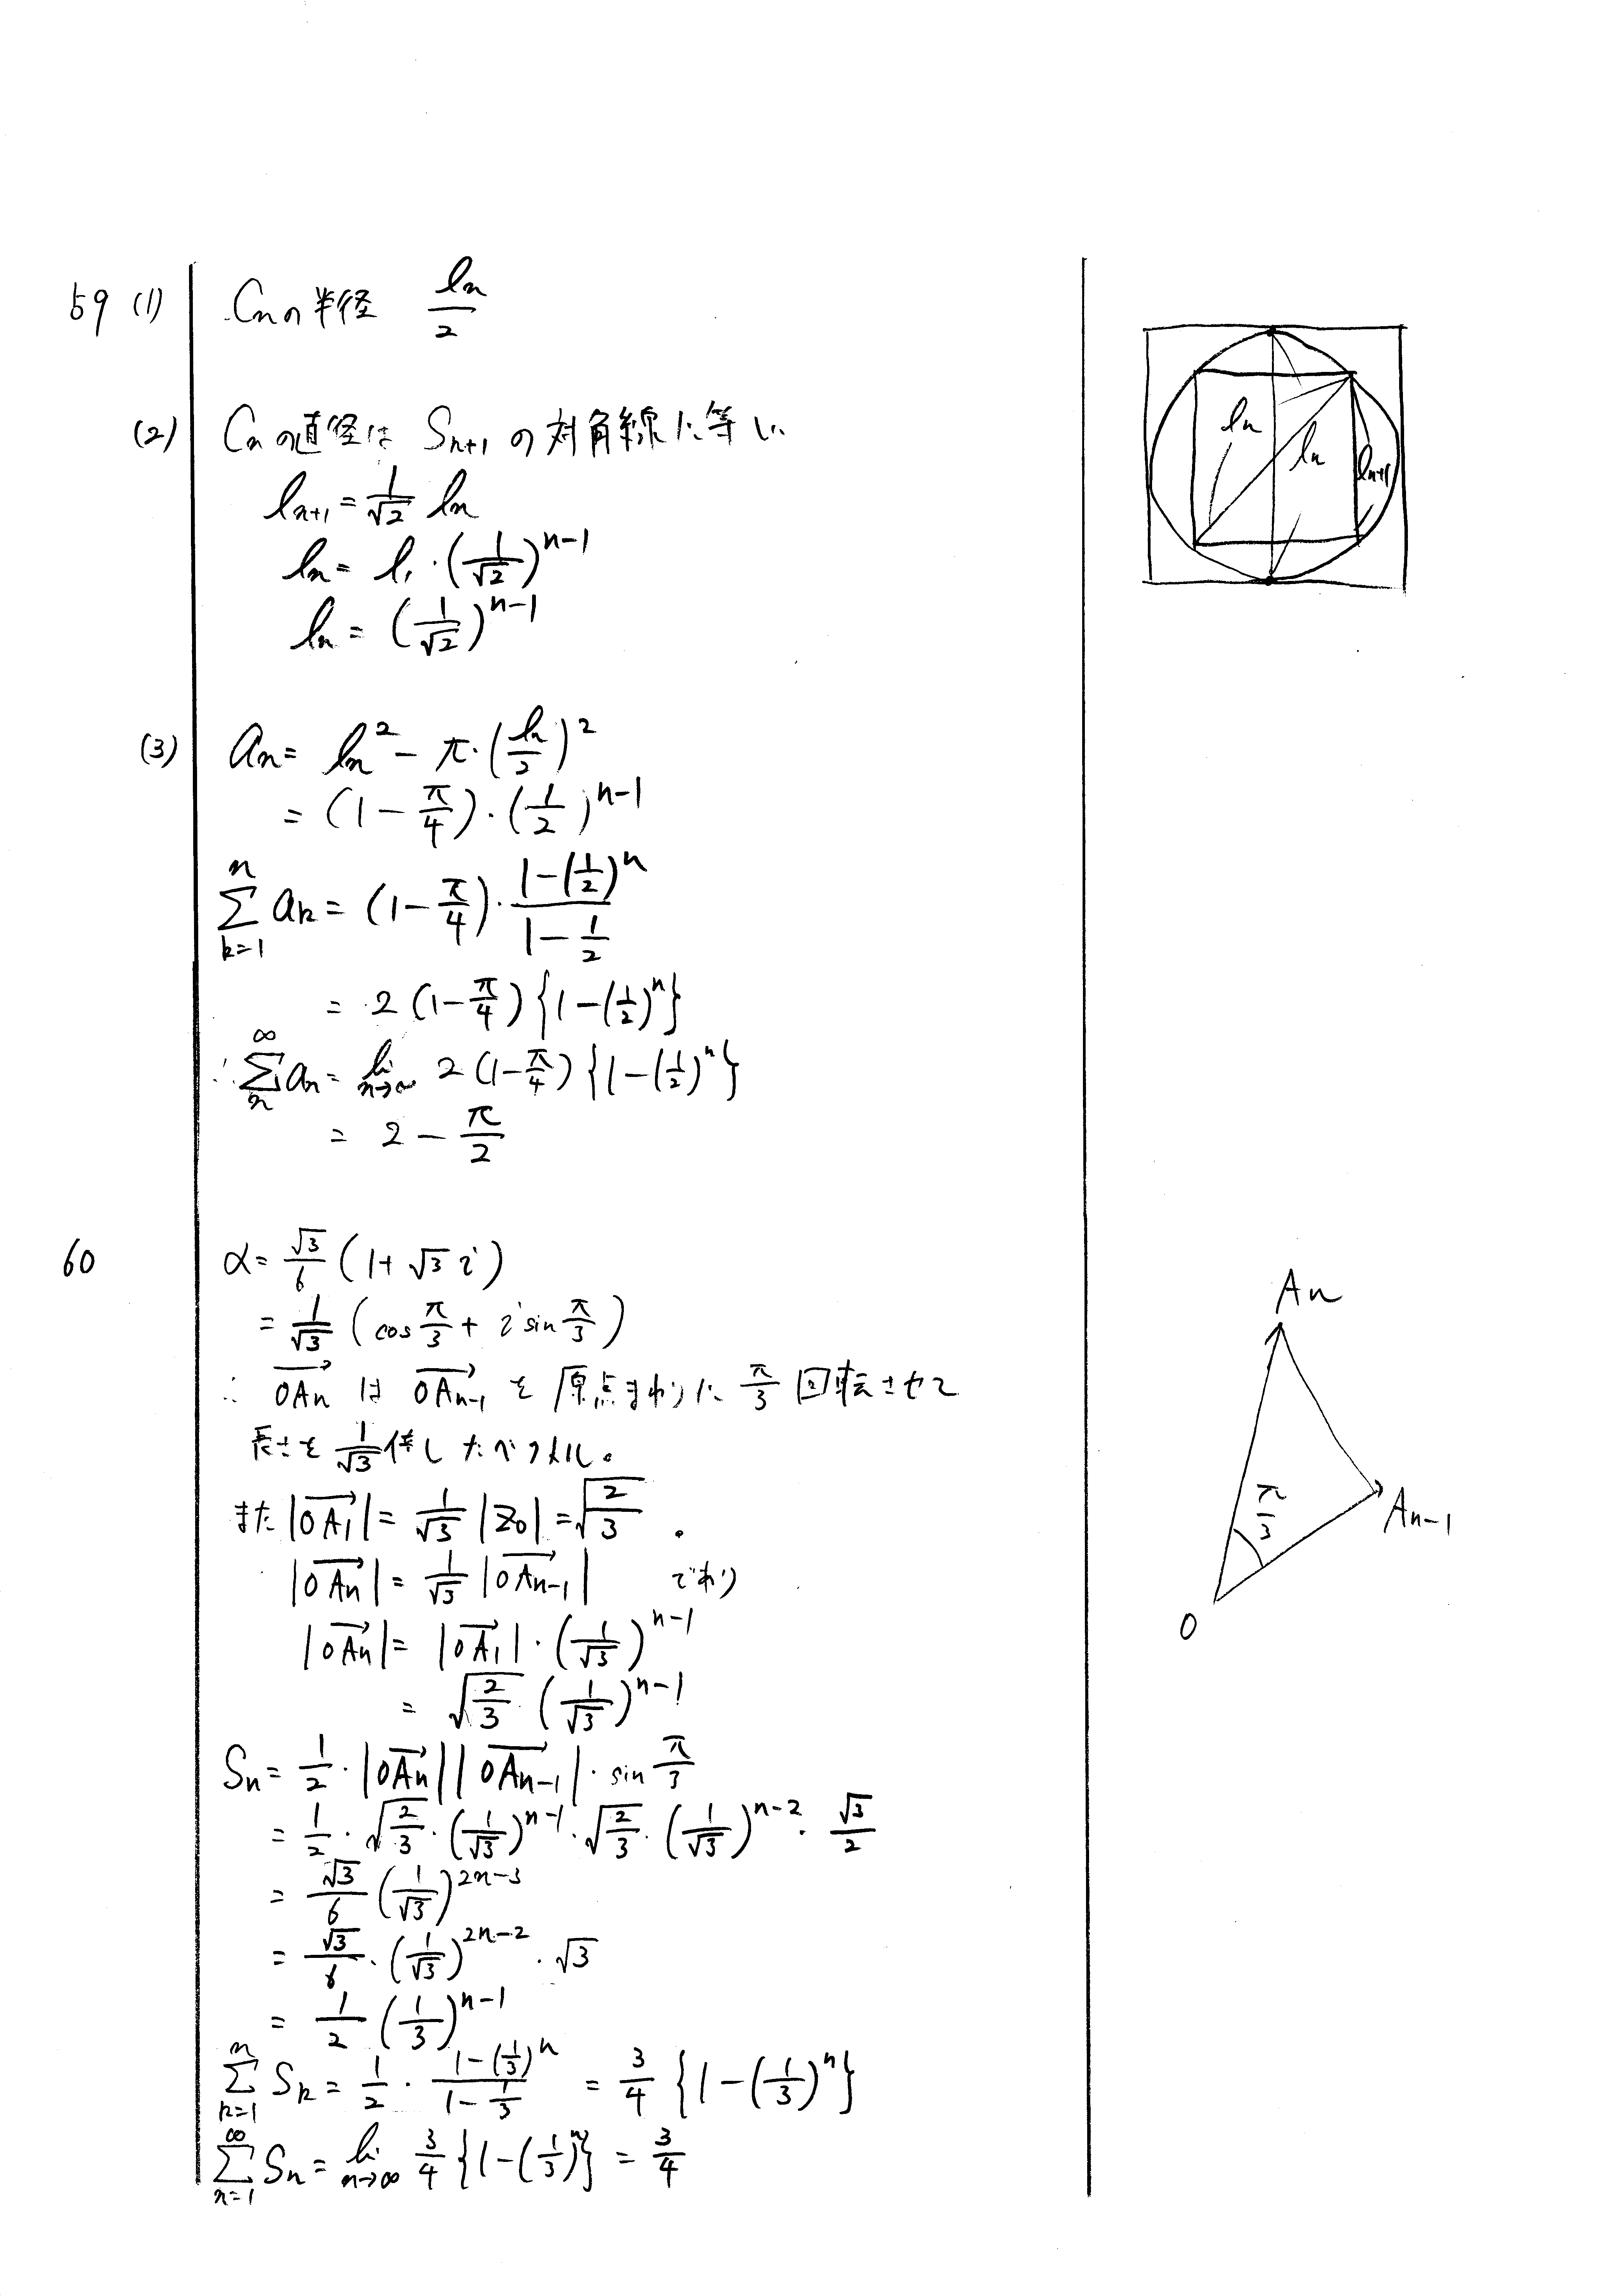 59 (1) Cnの半径 ln/2
(2) Cnの直径は Sn+1 の対角線に等しい
ln+1 = 1/√2 ln
ln = l1・(1/√2)^(n-1)
ln = (1/√2)^(n-1)
(3) an = ln^2 - π・(ln/2)^2
= (1 - π/4)・(1/2)^(n-1)
Σ[k=1→n] ak = (1 - π/4)・(1-(1/2)^n)/(1 - 1/2)
= 2(1-π/4){1-(1/2)^n}
∴ Σ[n→∞] an = lim[n→∞] 2(1-π/4){1-(1/2)^n}
= 2 - π/2
60 α = √3/6 (1+√3 i)
= 1/√3 (cos π/3 + i sin π/3)
∴ →OAn は →OAn-1 を原点まわりに π/3 回転させて
長さを 1/√3 倍したベクトル。
また |→OA1| = 1/√3 |z0| = √(2/3) 。
|→OAn| = 1/√3 |→OAn-1| であり
|→OAn| = |→OA1|・(1/√3)^(n-1)
= √(2/3) (1/√3)^(n-1)
Sn = 1/2・|→OAn||→OAn-1|・sin π/3
= 1/2・√(2/3)・(1/√3)^(n-1)・√(2/3)・(1/√3)^(n-2)・√3/2
= √3/6 (1/√3)^(2n-3)
= √3/6・(1/√3)^(2n-2)・√3
= 1/2 (1/3)^(n-1)
Σ[k=1→n] Sk = 1/2・(1-(1/3)^n)/(1-1/3) = 3/4 {1-(1/3)^n}
Σ[n=1→∞] Sn = lim[n→∞] 3/4 {1-(1/3)^n} = 3/4
ln
ln
ln+1
An
π/3
An-1
O